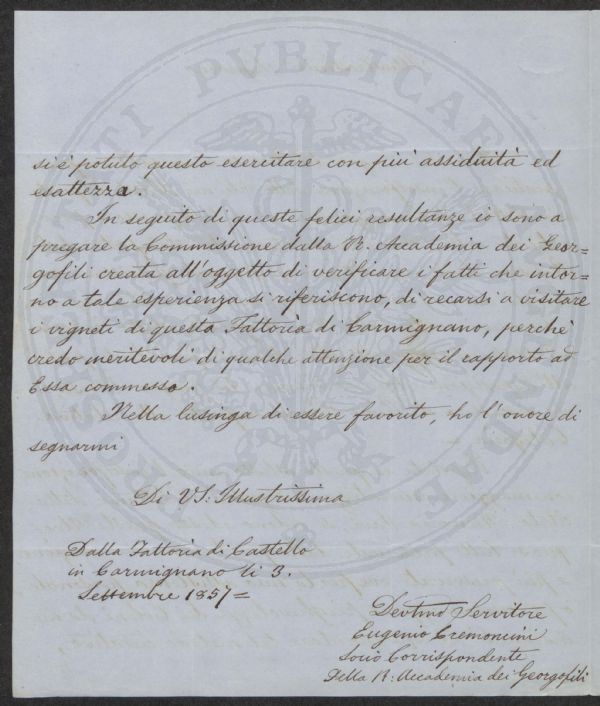 si è potuto questo esercitare con più assiduità ed
esattezza.
In seguito di queste felici resultanze io sono a
pregare la Commissione dalla R. Accademia dei Geor=
gofili creata all'oggetto di verificare i fatti che intor=
no a tale esperienza si riferiscono, di recarsi a visitare
i vigneti di questa Fattoria di Carmignano, perchè
credo meritevoli di qualche attenzione per il rapporto ad
Essa commesso.
Nella lusinga di essere favorito, ho l'onore di
segnarmi
Di VS: Illustrissima
Dalla Fattoria di Castello
in Carmignano li 3.
Settembre 1857=
Devtmo Servitore
Eugenio Cremoncini
Socio Corrispondente
Della R: Accademia dei Georgofili
PUBLICAE